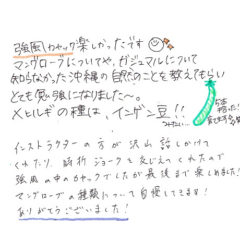 強風カヤック楽しかったです
マングローブについてや、ガジュマルについて
知らなかった沖縄の自然のことを教えてもらい
とても勉強になりました〜。
メヒルギの種は、インゲン豆!!
みたい…
インストラクターの方が沢山話しかけて
くれたり、時折ジョークを交じえてくれたので
強風の中のカヤックでしたが最後まで楽しめました。
マングローブの種類について自慢してきます!
ありがとうございました!